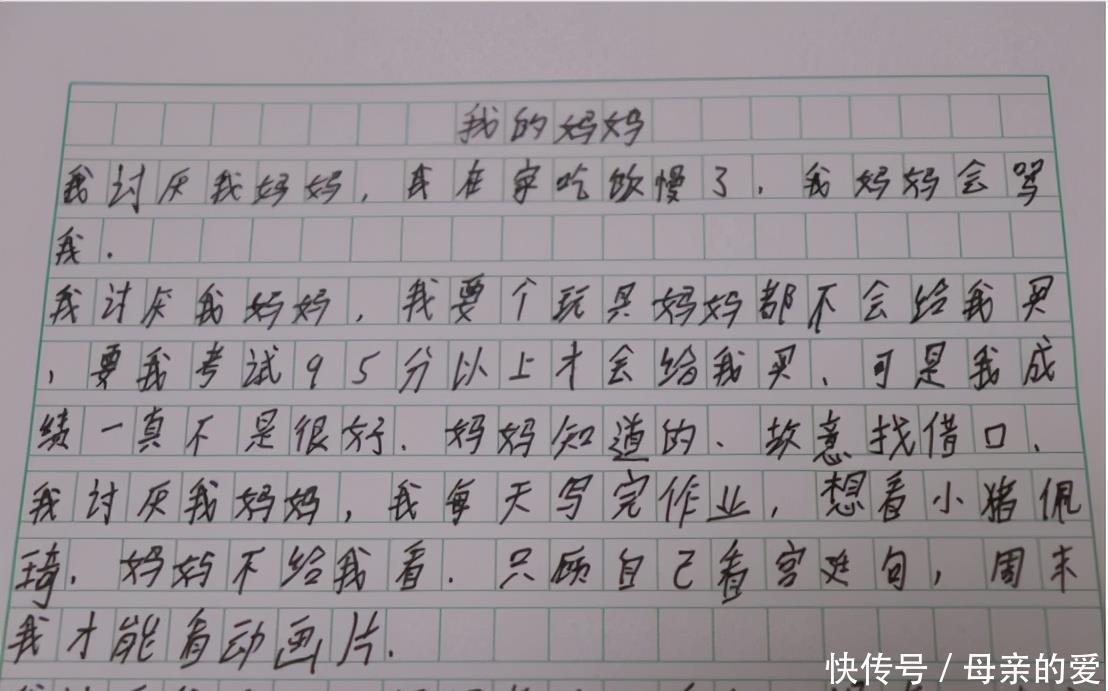 我的妈妈
我讨厌我妈妈，我在家吃饭慢了，我妈妈会骂
我.
我讨厌我妈妈，我要个玩具妈妈都不会给我买
，要我考试95分以上才会给我买、可是我成
绩一真不是很好.妈妈知道的、故意找借口、
我讨厌我妈妈，我每天写完作业，想看小猪佩
琦.妈妈不给我看.只顾自己看宫廷剧，周末
我才能看动画片.
快传号/母亲的爱